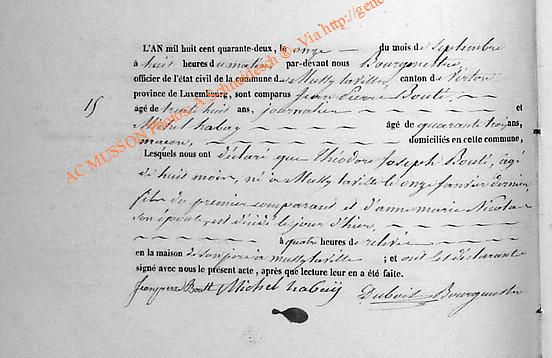 L'AN mil huit cent quarante-deux, le onze du mois de Septembre
à huit heures du matin par-devant nous Bourguignon
officier de l'état civil de la commune de Mussy la ville, canton de Virton
province de Luxembourg, sont comparus Jean Pierre Bouté,
15
âgé de trente huit ans, journalier et
Michel habay âgé de quarante trois ans,
maçon, domiciliés en cette commune,
Lesquels nous ont déclaré que Théodore Joseph Bouté, âgé
de huit mois, né à Mussy laville le onze Janvier dernier
fils du premier comparant et d'anne marie Nicolas
son épouse, est décédé le jour d'hier,
à quatre heures de relevée
en la maison de son père à mussy laville ; et ont les déclarants
signé avec nous le présent acte, après que lecture leur en a été faite.
Jean pierre Boutt Michel habaÿ Dubois
AC MUSSON Photos A. Schneidesch © Via http://gene